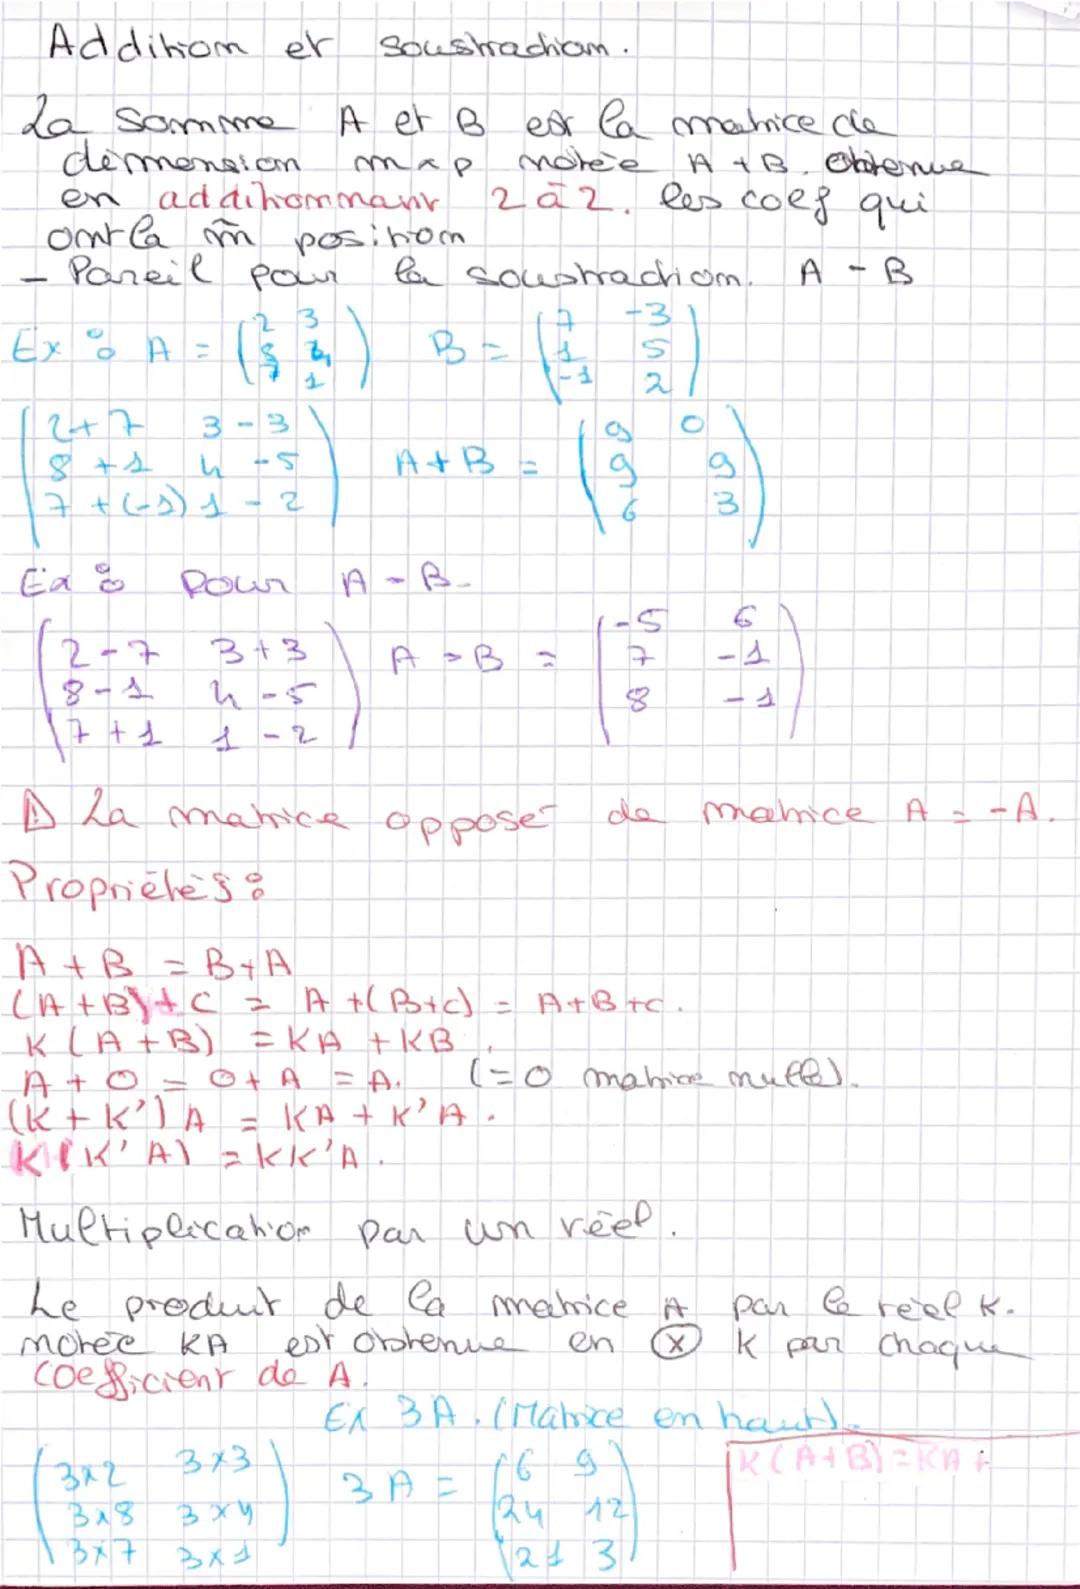 Addition et soustraction.
La somme A et B est la matrice de
dimension m x p notée A + B. Obtenue
en additionnant 2 à 2. les coef qui
ont la m̃ position
- Pareil pour la soustraction. A - B
Ex : A = ( 2 3 ) B = ( 7 -3 )
8 4 1 5
7 1 -1 2
( 2+7 3-3 ) A+B = ( 9 0 )
8+1 4-5 9 9
7+(-1) 1-2 6 3
Ex : Pour A - B-
( 2-7 3+3 ) A - B = ( -5 6 )
8-1 4-5 7 -1
7+1 1-2 8 -1
⚠ La matrice opposé de matrice A = -A.
Propriétés :
A + B = B+A
(A+B)+C = A+(B+C) = A+B+C.
K(A+B) = KA + KB.
A + O = O + A = A. (=O matrice nulle).
(K + K')A = KA + K'A.
K(K'A) = KK'A.
Multiplication par un réel.
Le produit de la matrice A par le réel K.
notée KA est obtenue en ⓧ K par chaque
coefficient de A.
Ex 3A. (Matrice en haut).
( 3x2 3x3 ) 3A = ( 6 9 )
3x8 3x4 24 12
3x7 3x1 21 3
K(A+B)=KA+